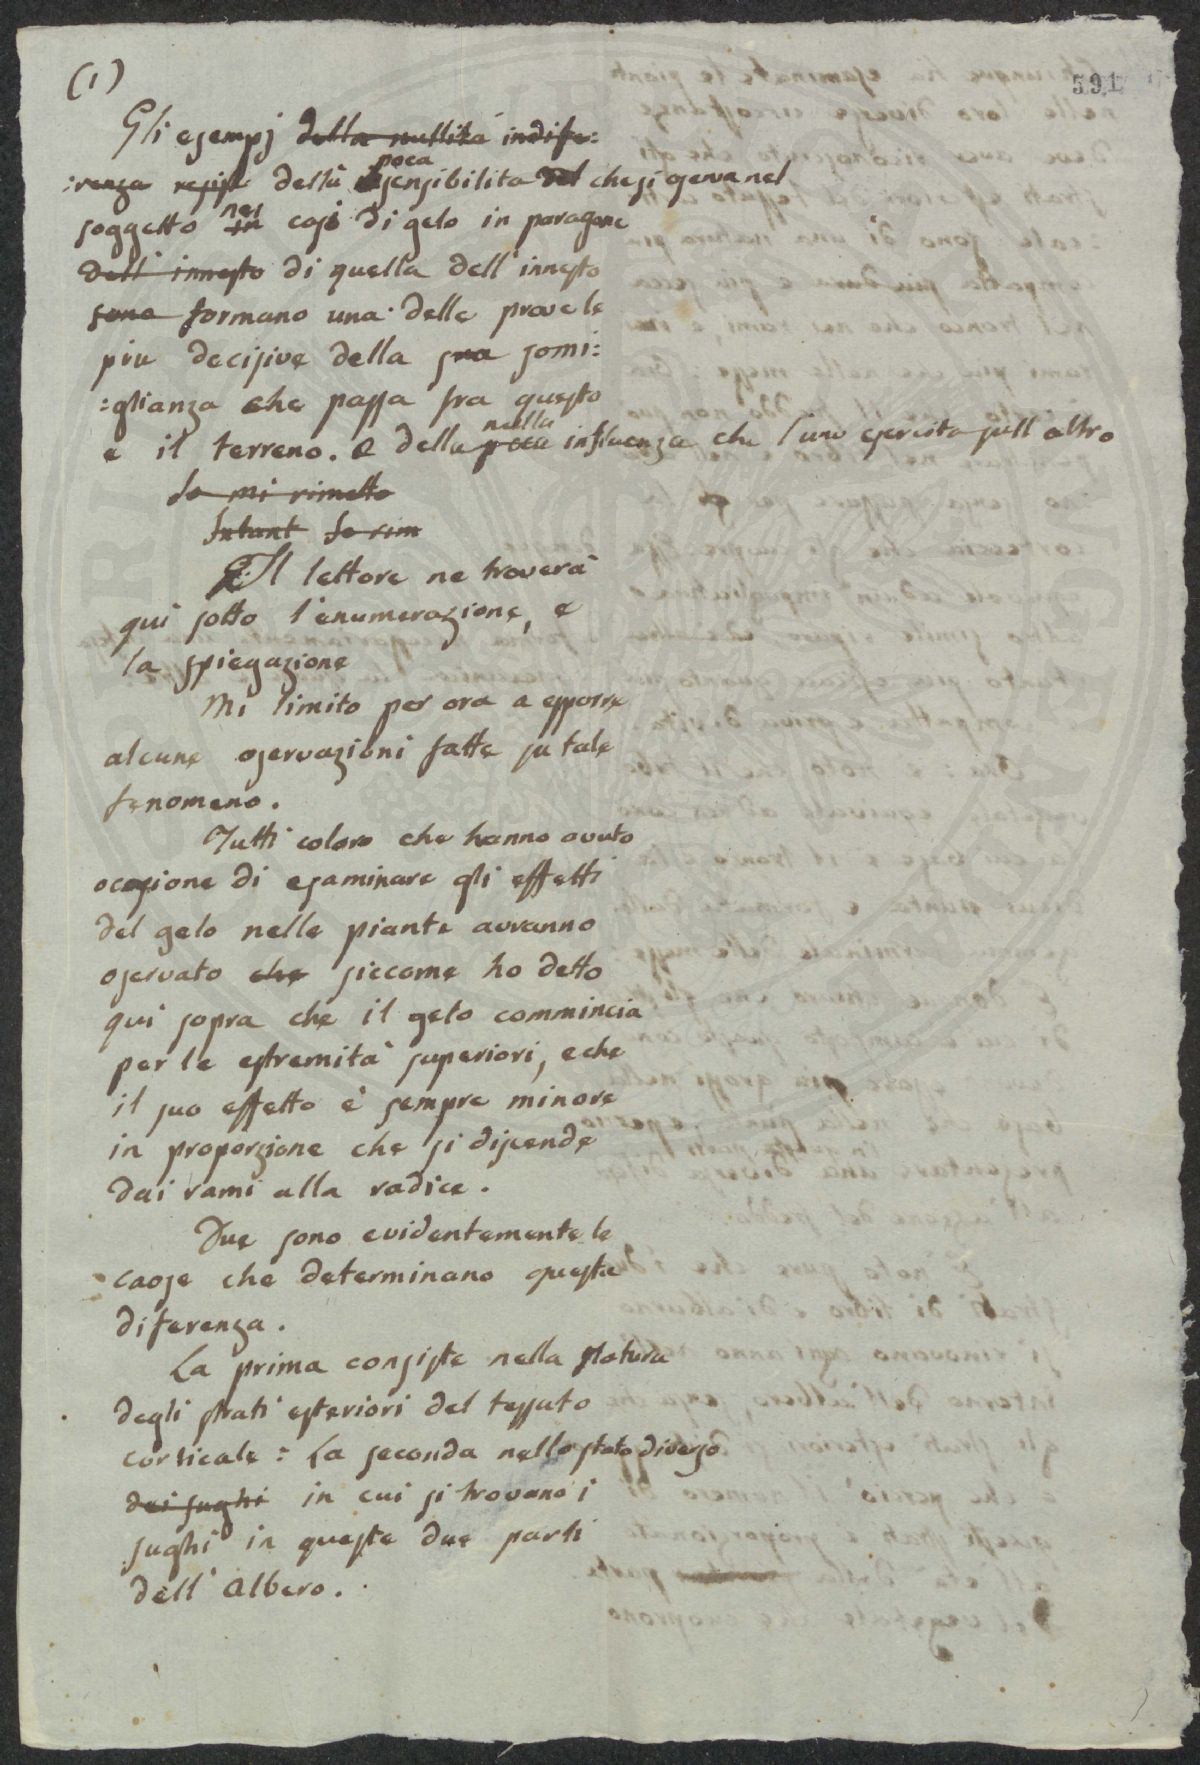 (1)
591
Gli esempj della nullità indife:
:renza resist della poca sensibilita del che si oserva nel
soggetto in nei casi di gelo in paragone
dell'innesto di quella dell'innesto
sono formano una delle prove le
piu decisive della sua somi:
:glianza che passa fra questo
e il terreno. e della poca nulla influenza che l'uno esercita sull altro
Io mi rimetto
Intant Io rim
Il lettore ne troverà
qui sotto l'enumerazione, e
la spiegazione
Mi limito per ora a esporre
alcune oservazioni fatte su tale
fenomeno.
Tutti coloro che hanno avuto
ocasione di esaminare gli effetti
del gelo nelle piante avranno
oservato che siccome ho detto
qui sopra che il gelo commincia
per le estremità superiori, e che
il suo effetto è sempre minore
in proporzione che si discende
dai rami alla radice.
Due sono evidentemente le
caose che determinano questa
diferenza.
La prima consiste nella natura
degli strati esteriori del tessuto
corticale: La seconda nello stato diverso
dei sughi in cui si trovano i
sughi in queste due parti
dell'Albero.